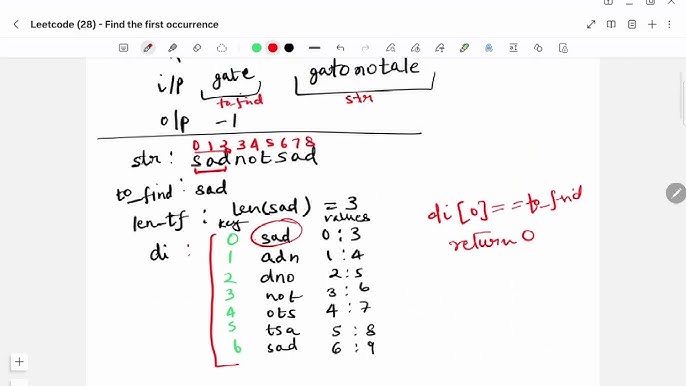 Leetcode (28) - Find the first occurrence
i/p gate gatonotale
to_find str
o/p -1
0 1 2 3 4 5 6 7 8
str : sadnotsad
to_find : sad
len_tf : len(sad) = 3
key values
di : 0 sad 0 : 3
1 adn 1 : 4
2 dno 2 : 5
3 not 3 : 6
4 ots 4 : 7
5 tsa 5 : 8
6 sad 6 : 9
di [0] == to_find
return 0